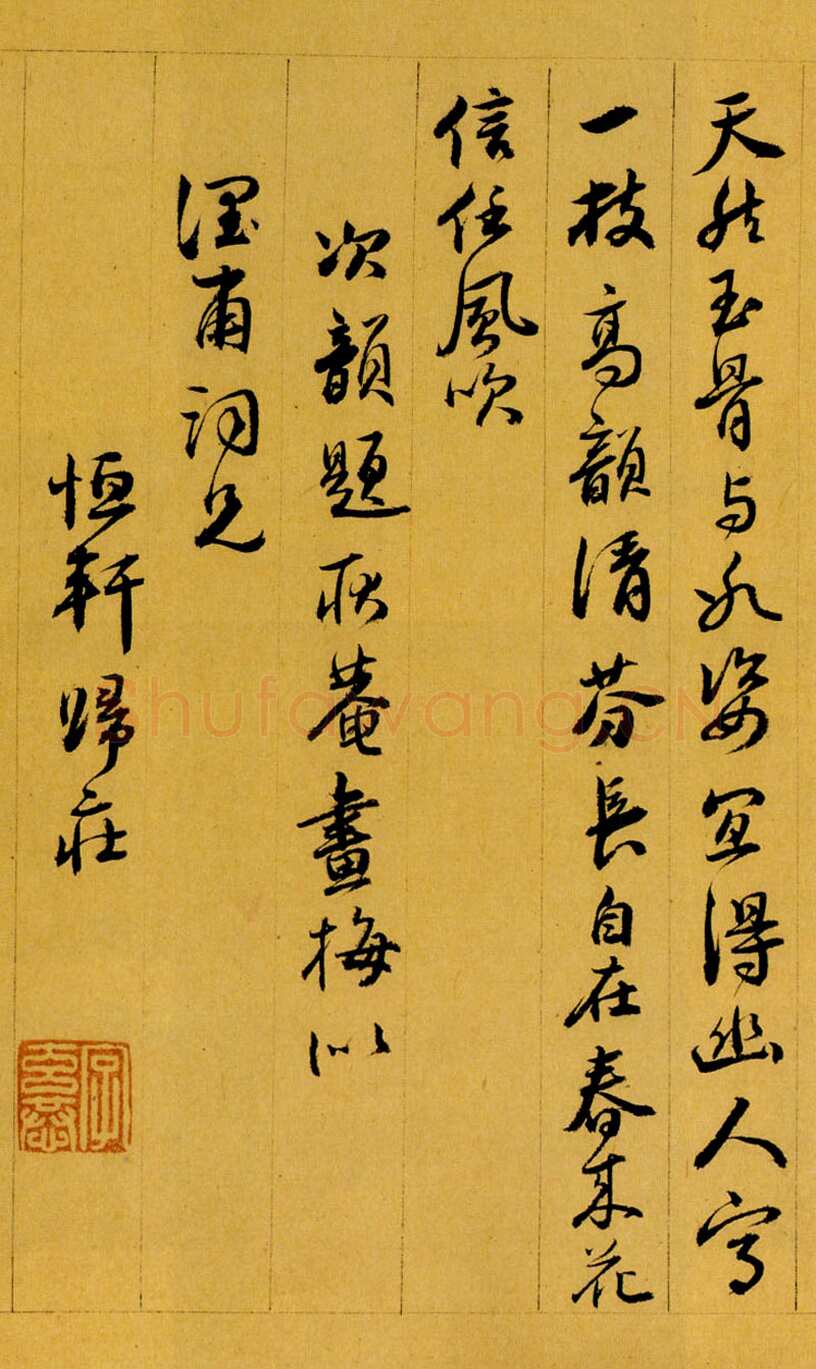 天然玉骨与冰姿宜得幽人写
一枝高韻清芬長自在春来花
信任風吹
次韻題秋菴畫梅似
甫詞兄
恒軒歸莊
shufawang.CN